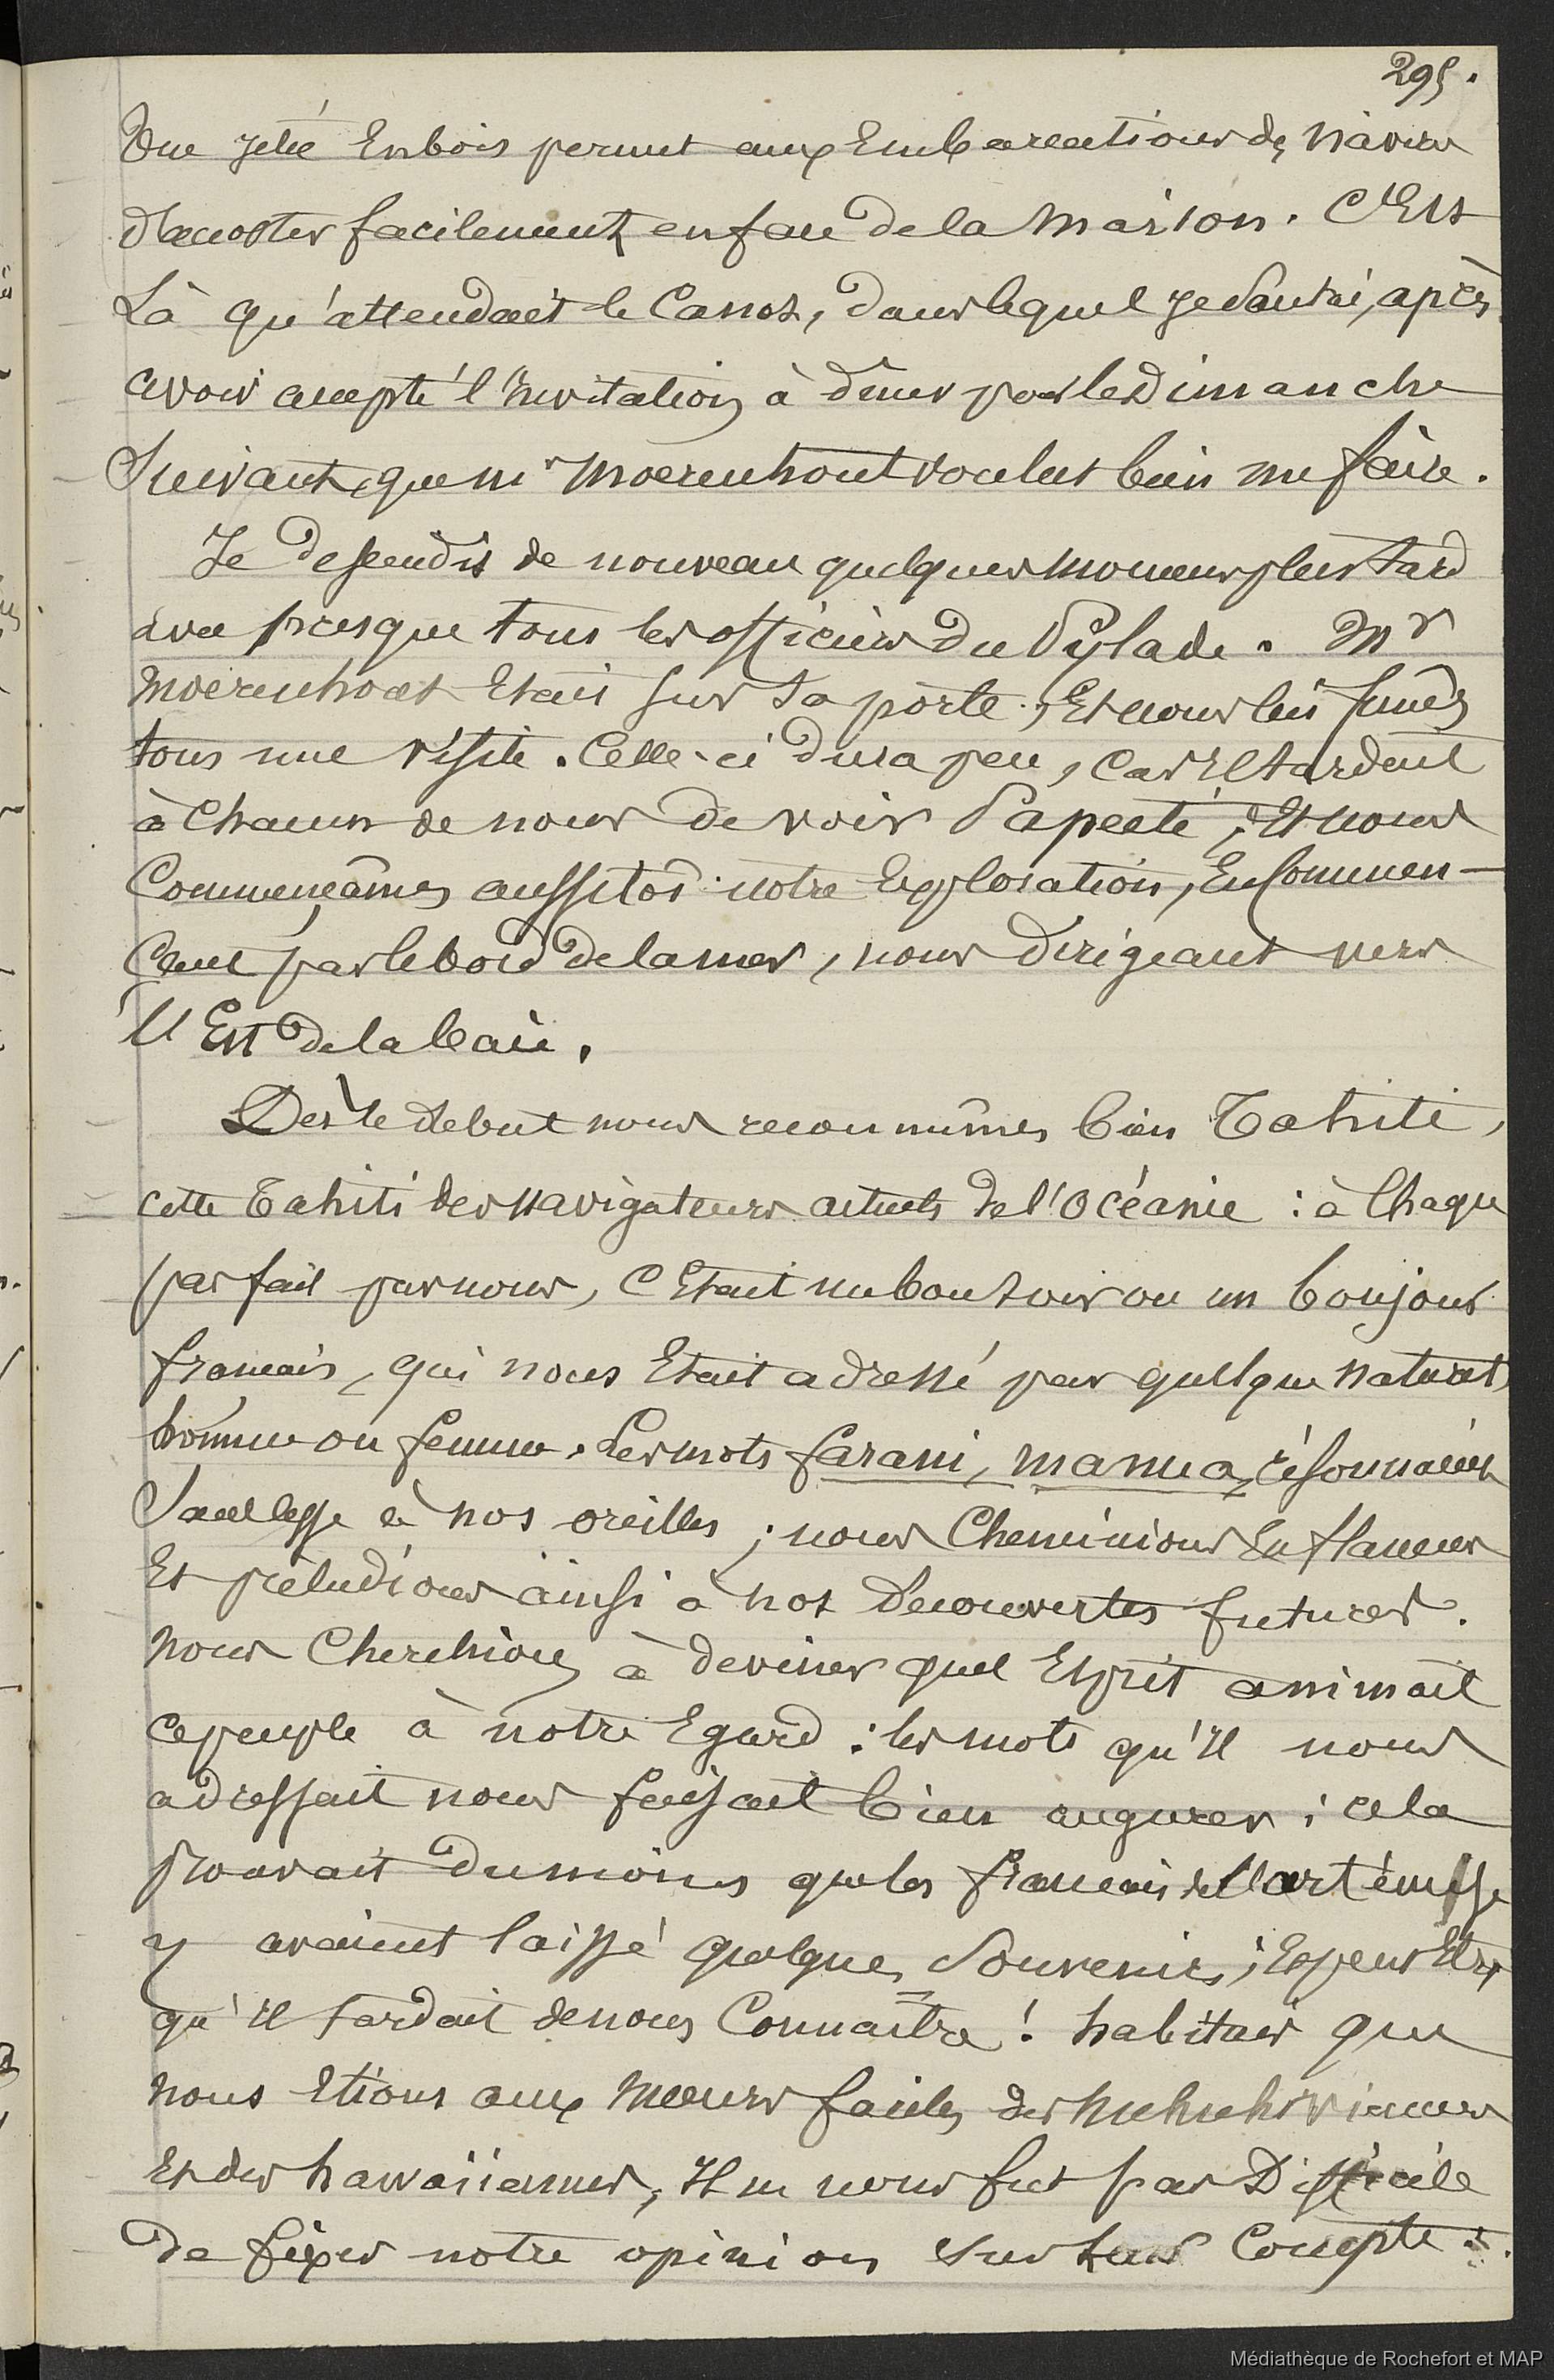 295.
Une jetée En bois permet aux Embarcations des navires
d'accoster facilement en face de la maison. C'Est
Là qu'attendait le Canot, dans lequel je sautai, après
avoir accepté l'Invitation à dîner pour le Dimanche
Suivant, que Mr Moerenhout voulut bien me faire.
Je descendis de nouveau quelques momens plus tard
avec presque tous les officiers du Pylade. Mr
Moerenhout Etait sur sa porte, Et nous lui fîmes
tous une visite. Celle-ci dura peu, Car Il tardait
à Chacun de nous de voir Papeete, Et nous
Commençâmes aussitôt notre Exploration, En Commen-
çant par le bord de la mer, nous dirigeant vers
l'Est de la baie.
Dès le debut nous reconnûmes bien Tahiti,
cette Tahiti des navigateurs actuels de l'Océanie : à Chaque
pas fait par nous, C'Etait un bonsoir ou un bonjour
français, qui nous Etait adressé par quelque naturel,
homme ou femme. Les mots farani, manua, résonnaient
Sans cesse à nos oreilles ; nous Cheminions En flaneurs
Et préludions ainsi à nos Découvertes futures.
Nous Cherchions à deviner quel Esprit animait
ce peuple à notre Egard : les mots qu'Il nous
adressait nous faisait bien augurer ; cela
prouvait du moins que les français de l'artémise
y avaient laissé quelques Souvenirs ; Et peut Etre
qu'Il tardait de nous Connaître ! habitués que
nous Etions aux mœurs faciles des Nuhuhiviennes
Et des hawaiiennes, Il ne nous fut pas Difficile
de fixer notre opinion sur leur Compte :